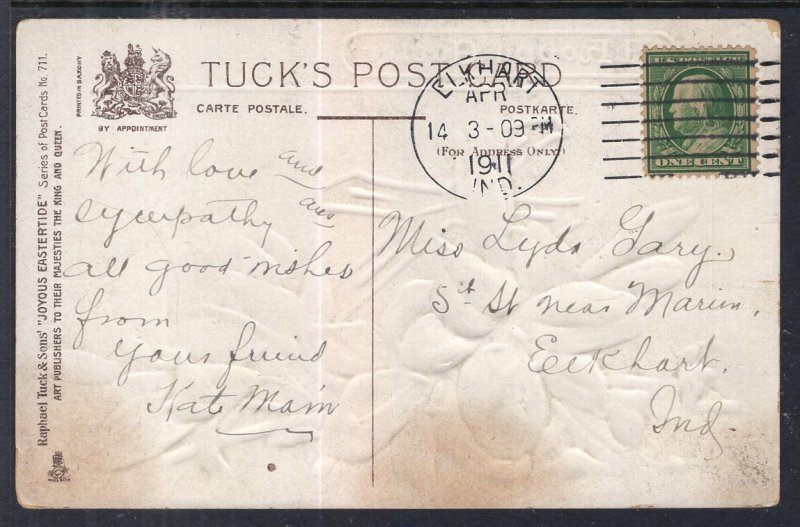 TUCK'S POST CARD
CARTE POSTALE.
POSTKARTE.
(FOR ADDRESS ONLY)
PRINTED IN SAXONY
BY APPOINTMENT
Raphael Tuck & Sons' "JOYOUS EASTERTIDE" Series of Post Cards No. 711.
ART PUBLISHERS TO THEIR MAJESTIES THE KING AND QUEEN.
ELKHART
APR
14 3-09 PM
1911
IND.
U.S. POSTAGE
ONE CENT
With love and
sympathy
all good wishes
from
your friend
Kate Main
Miss Lyda Gary.
5th St near Marion.
Elkhart.
Ind.